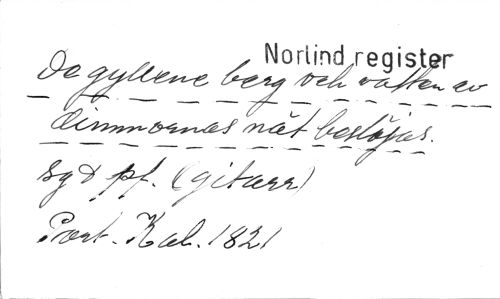 Norlind register
De gyllene berg och vatten av
dimmornas nät beslöjas.
sg & pf. (gitarr)
Poet. Kal. 1821